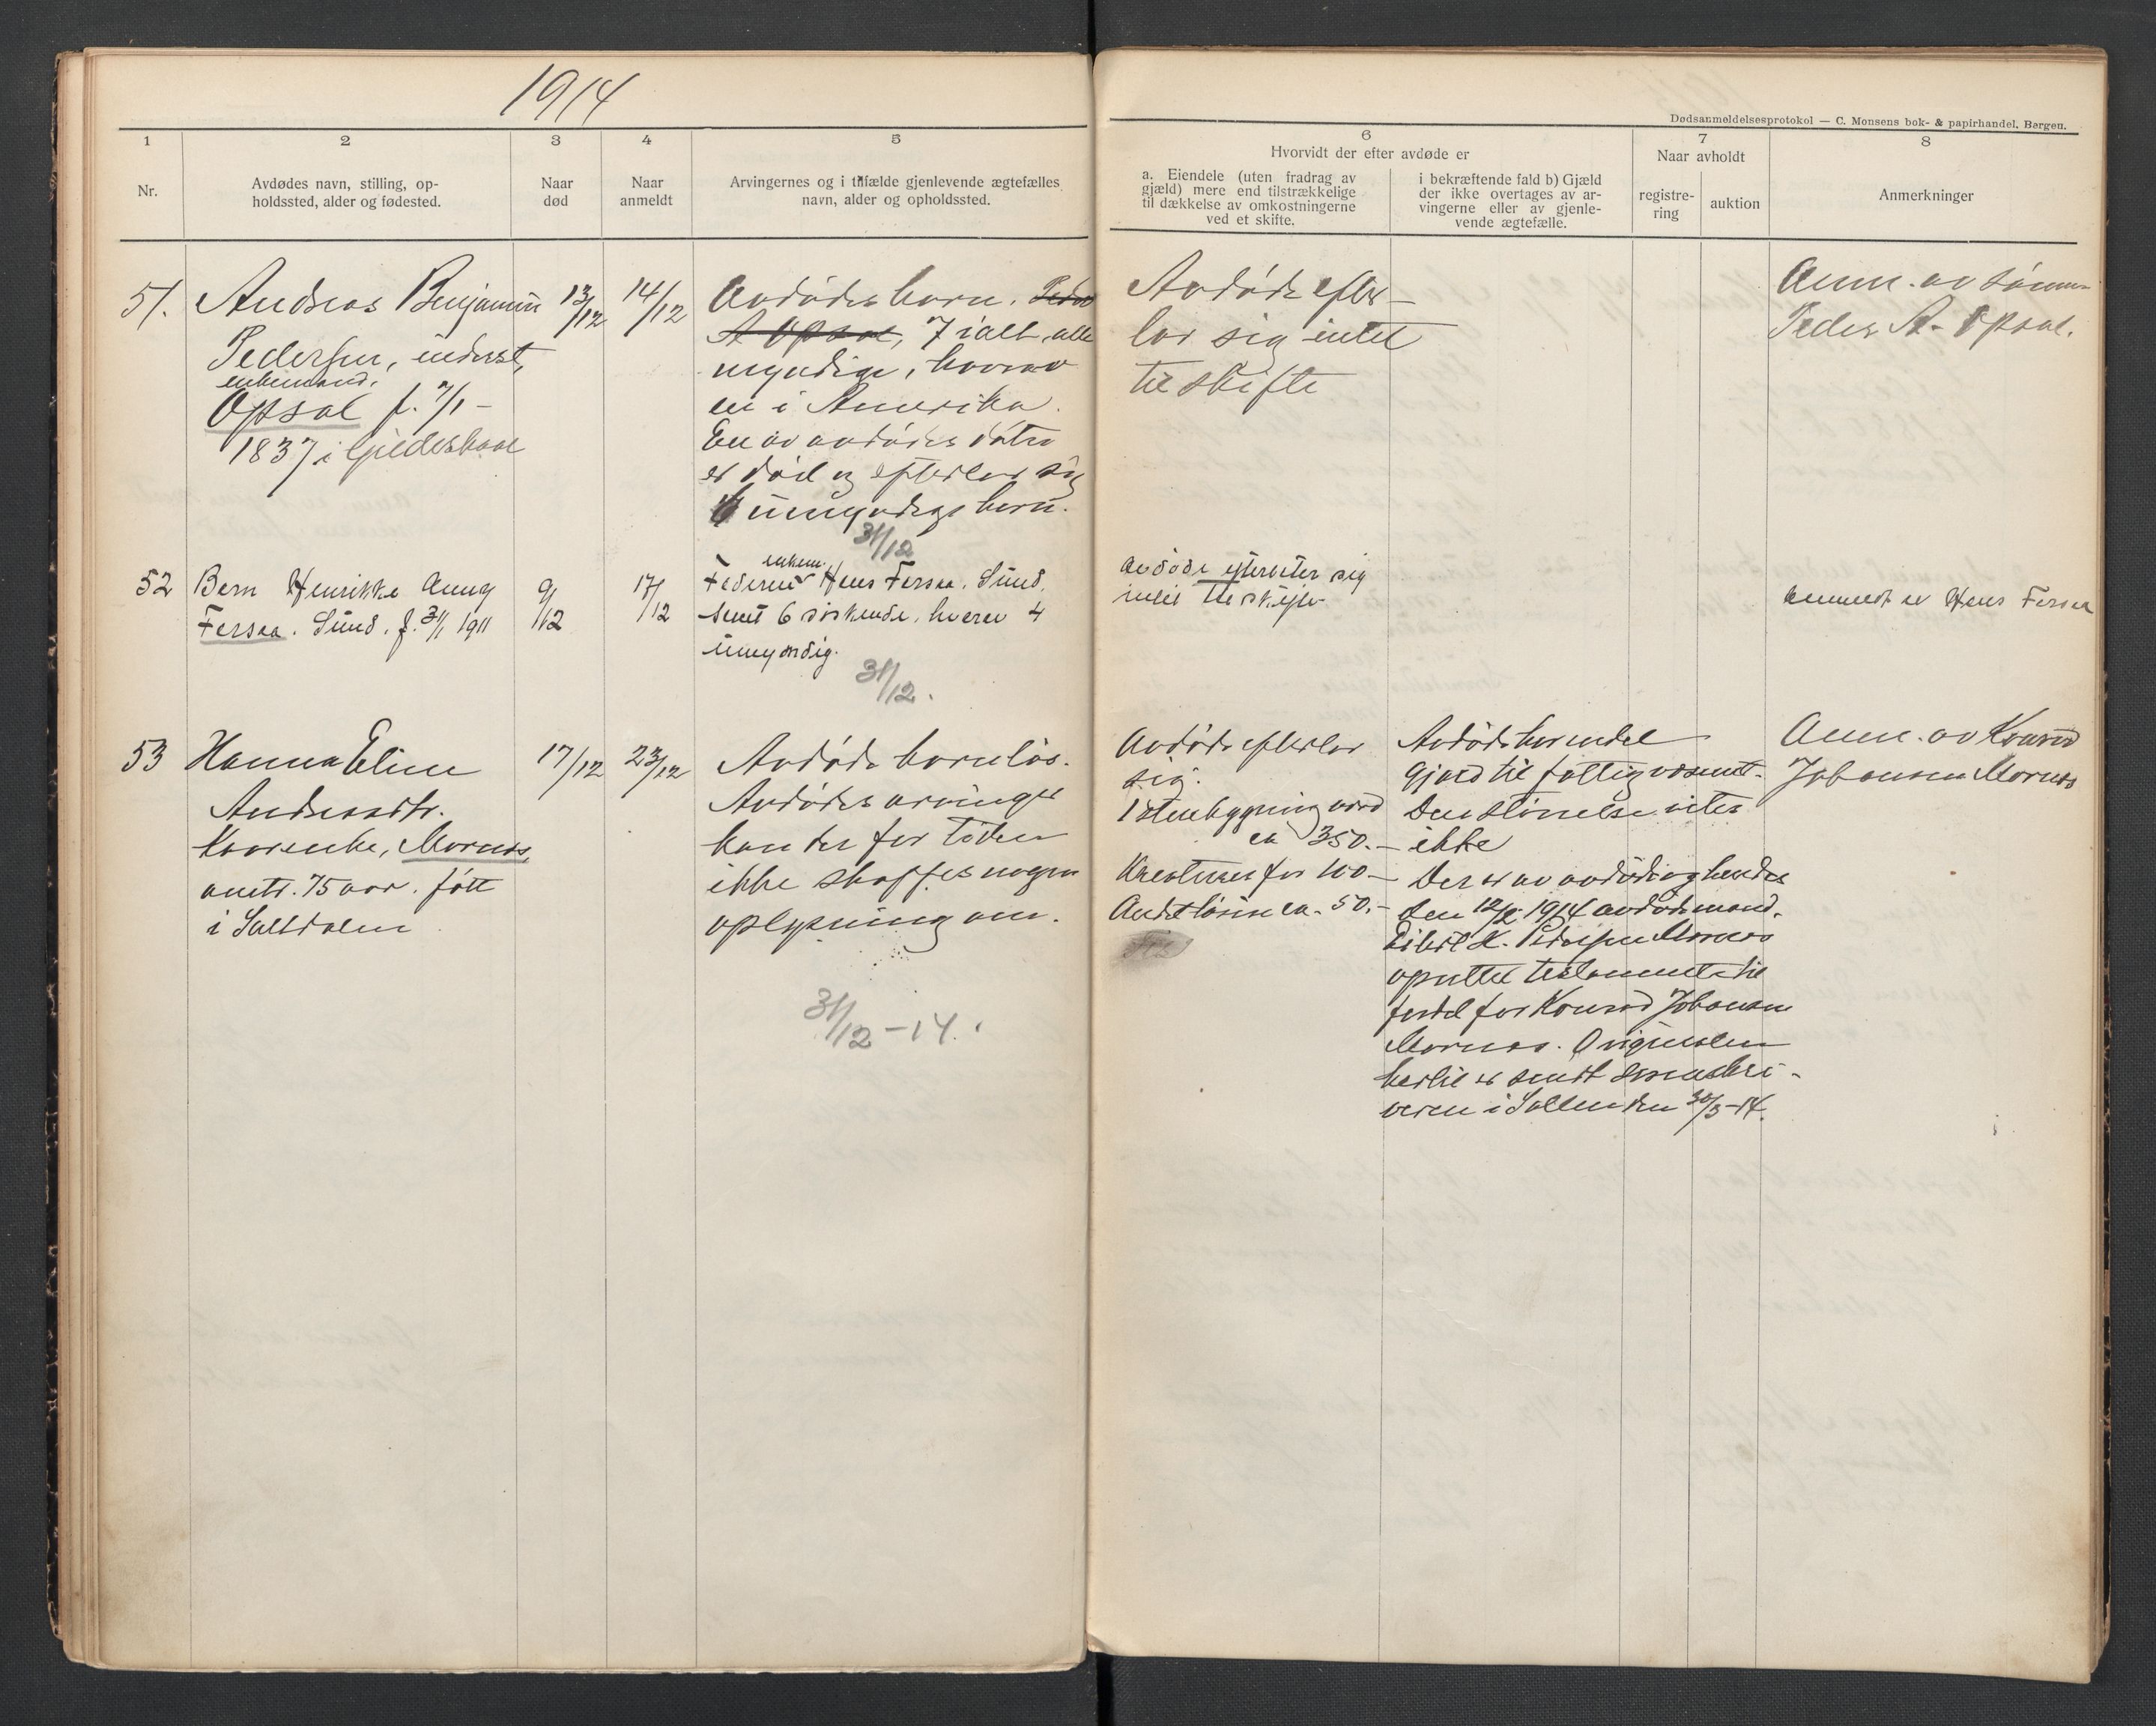 1914
Dødsanmeldelsesprotokol — C. Monsens bok- & papirhandel, Bergen.
1
2
3
4
5
6
7
8
Nr.
Avdødes navn, stilling, op-
holdssted, alder og fødested.
Naar
død
Naar
anmeldt
Arvingernes og i tilfælde gjenlevende ægtefælles
navn, alder og opholdssted.
Hvorvidt der efter avdøde er
a. Eiendele (uten fradrag av
gjæld) mere end tilstrækkelige
til dækkelse av omkostningerne
ved et skifte.
i bekræftende fald b) Gjæld
der ikke overtages av ar-
vingerne eller av gjenle-
vende ægtefælle.
Naar avholdt
registre-
ring
auktion
Anmerkninger
51.
Andreas Benjamin
Pedersen, inderst,
enkemand.
Opsal f. 7/1 -
1837 i Gildeskaal
13/12
14/12
Avdødes barn. Peder
A Opsal, 7 ialt, alle
myndige, hvorav
en i Amerika.
En av avdødes døtre
er død og efterlar sig
6 umyndige barn.
31/12
Avdøde efter-
lar sig intet
til skifte
Anm. av sønnen
Peder A. Opsal.
52
Barn Henrikke Anny
Fersaa. Sund. f. 31/1 1911
9/12
17/12
enkem.
Faderen Hans Fersaa. Sund.
samt 6 søskende, hvorav 4
umyndig.
31/12.
avdøde efterlater sig
intet til skifte
anmeldt av Hans Fersaa
53
Hanna Eline
Andersdtr.
Kaarenke, Mornes,
omtr. 75 aar. født
i Saltdalen
17/12
23/12
Avdøde barnløs.
Avdødes arvinger
kan der for tiden
ikke skaffes nogen
oplysning om.
31/12-14.
Avdøde efterlar
sig.
1 stuebygning værd
ca 350.-
Kreaturer for 100-
Andet løsøre ca. 50.-
Avdøde har endel
gjæld til fattigvæsenet.
Dens størrelse vites
ikke
Der er av avdøde og hendes
den 12/2 1914 avdøde mand,
Eibert K. Pedersen Mornes
oprettet testamente til
fordel for Konrad Johansen
Mornes. Originalen
hertil er sendt sorenskri-
veren i Salten den 30/3-14.
Anm. av Konrad
Johansen Mornes